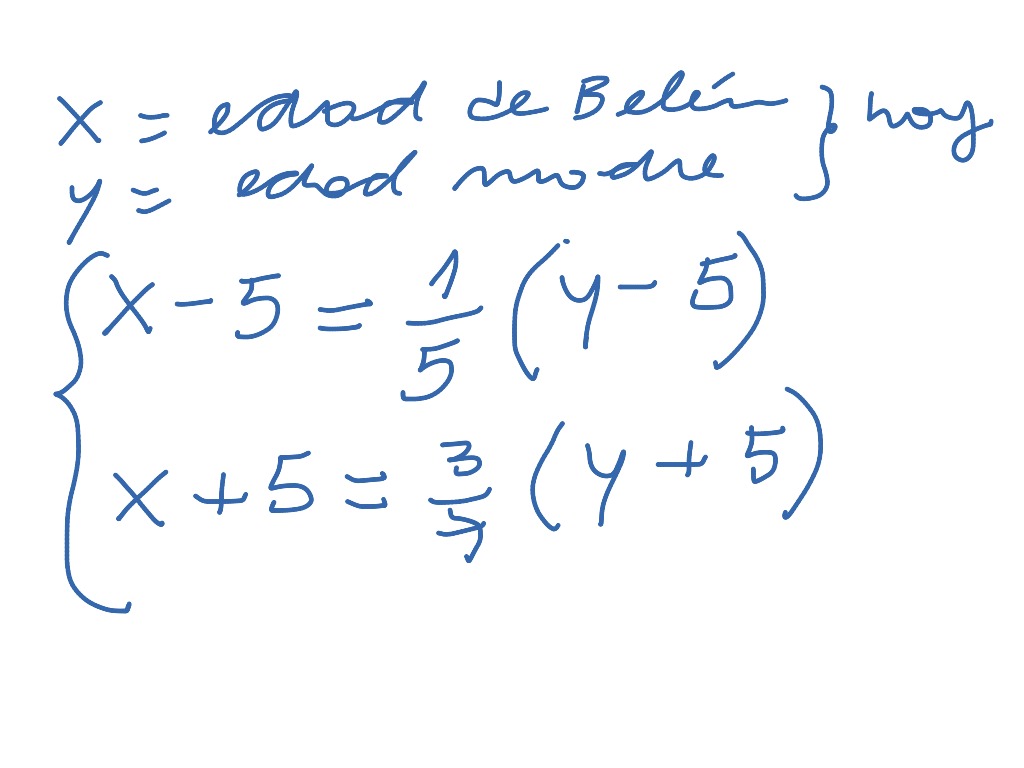 x = edad de Belén } hoy
y = edad madre
{ x - 5 = 1/5 (y - 5)
x + 5 = 3/7 (y + 5)